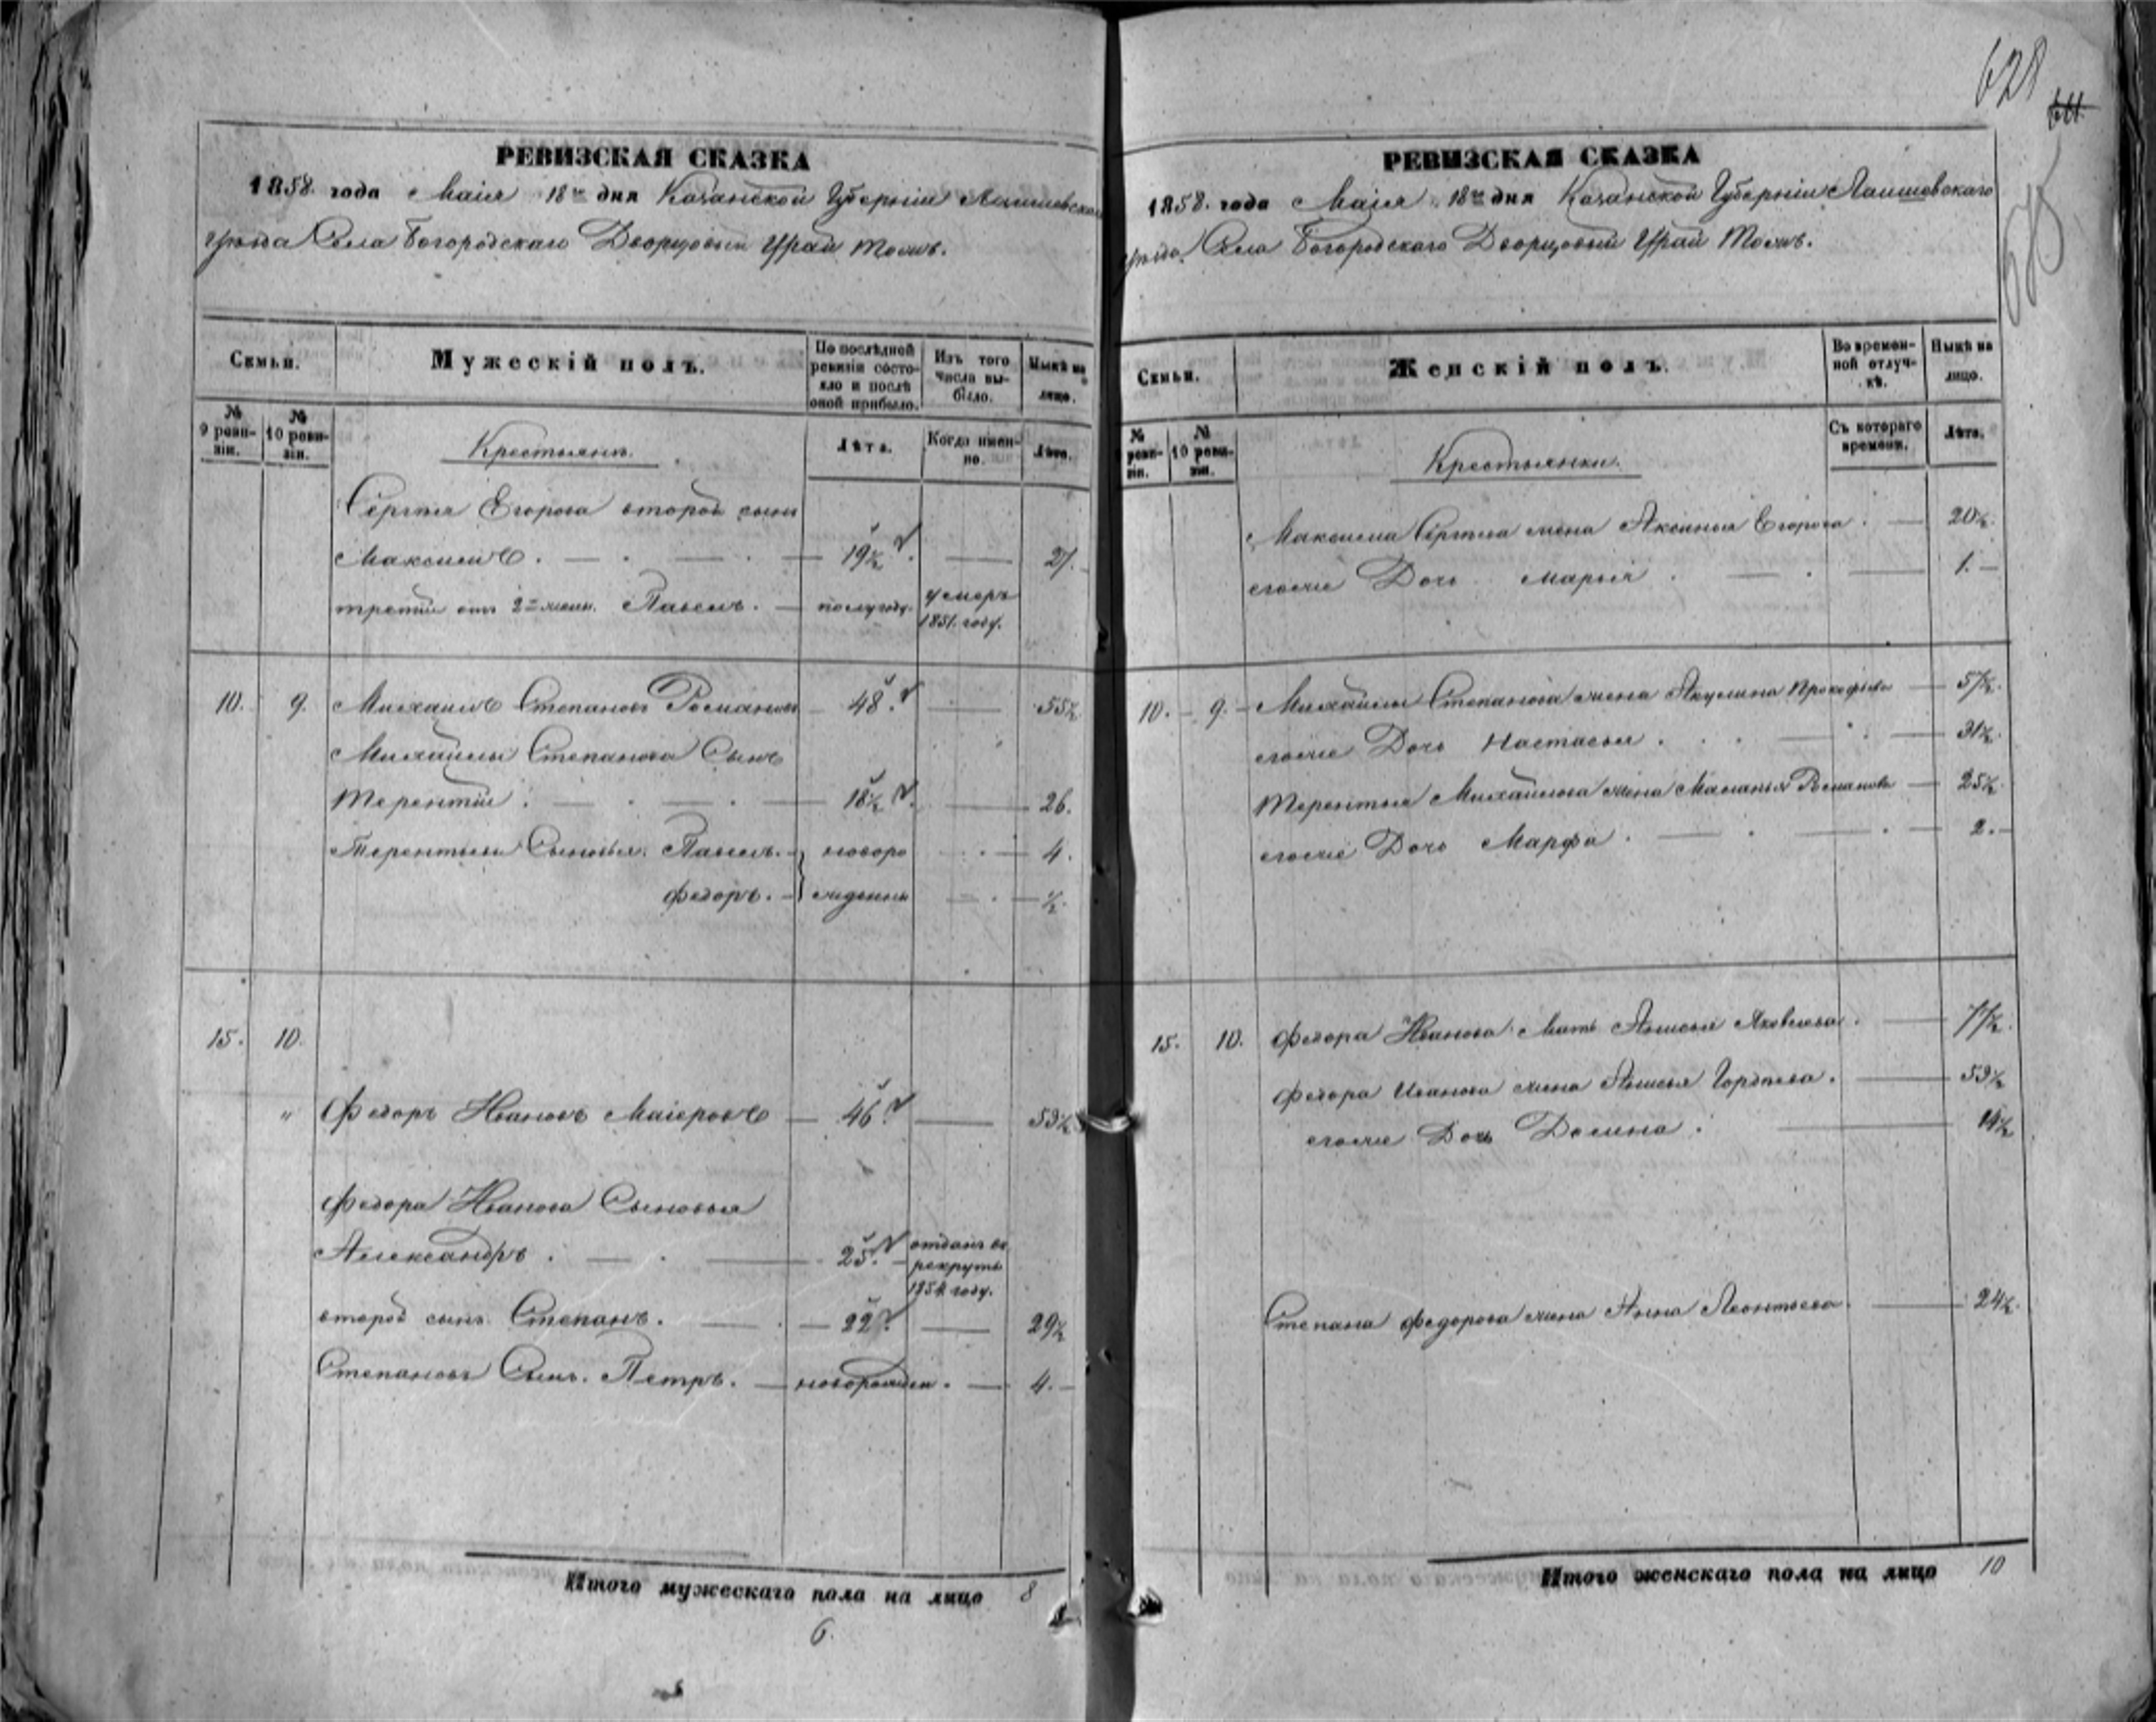 628
611
675
РЕВИЗСКАЯ СКАЗКА
1858 года Маія 18го дня Казанской Губерніи Лаишевскаго
уѣзда Села Богородскаго Дворцовый Урай тожъ.
Семьи.
Мужескій полъ.
По послѣдней ревизіи состояло и послѣ оной прибыло.
Изъ того числа выбыло.
Нынѣ на лицо.
№ 9 ревизіи.
№ 10 ревизіи.
Крестьяне.
Лѣта.
Когда именно.
Лѣта.
Сергѣя Егорова второй сынъ
Максимъ. — 19½ — 27.
третій отъ 2й жены. Павелъ. — полугоду. умеръ 1851. году.
10. 9. Михайлъ Степановъ Романовъ — 48. — 55½
Михайлы Степанова Сынъ
Терентій. — 18½. — 26.
Терентьевы Сыновья. Павелъ. — новоро — 4.
Федоръ. — жденны — ½.
15. 10.
" Федоръ Ивановъ Маіеровъ — 46. — 53½
Федора Иванова Сыновья
Александръ. — 25. — отданъ въ рекруты 1854 году.
второй сынъ Степанъ. — 22. — 29½
Степановъ Сынъ. Петръ. — новорожден. — 4. —
Итого мужескаго пола на лицо 8
6.
РЕВИЗСКАЯ СКАЗКА
1858. года Маія 18го дня Казанской Губерніи Лаишевскаго
уѣзда Села Богородскаго Дворцовый Урай тожъ.
Семьи.
Женскій полъ.
Во временной отлучкѣ.
Нынѣ на лицо.
№ ревизіи.
№ 10 ревизіи.
Крестьянки.
Съ котораго времени.
Лѣта.
Максима Сергѣева жена Аксинья Егорова. — 20½.
егоже Дочь Марья. — 1. —
10. — 9. — Михайлы Степанова жена Акулина Прокофьева — 57½.
егоже Дочь Настасья. — 31½.
Терентья Михайлова жена Маланья Романова — 25½.
егоже Дочь Марфа. — 2. —
15. 10. Федора Иванова Мать Яковлева. — 71½.
Федора Иванова жена Гордѣева. — 53½
егоже Дочь Домна. — 14½
Степана Федорова жена Анна Леонтьева. — 24½.
Итого женскаго пола на лицо 10